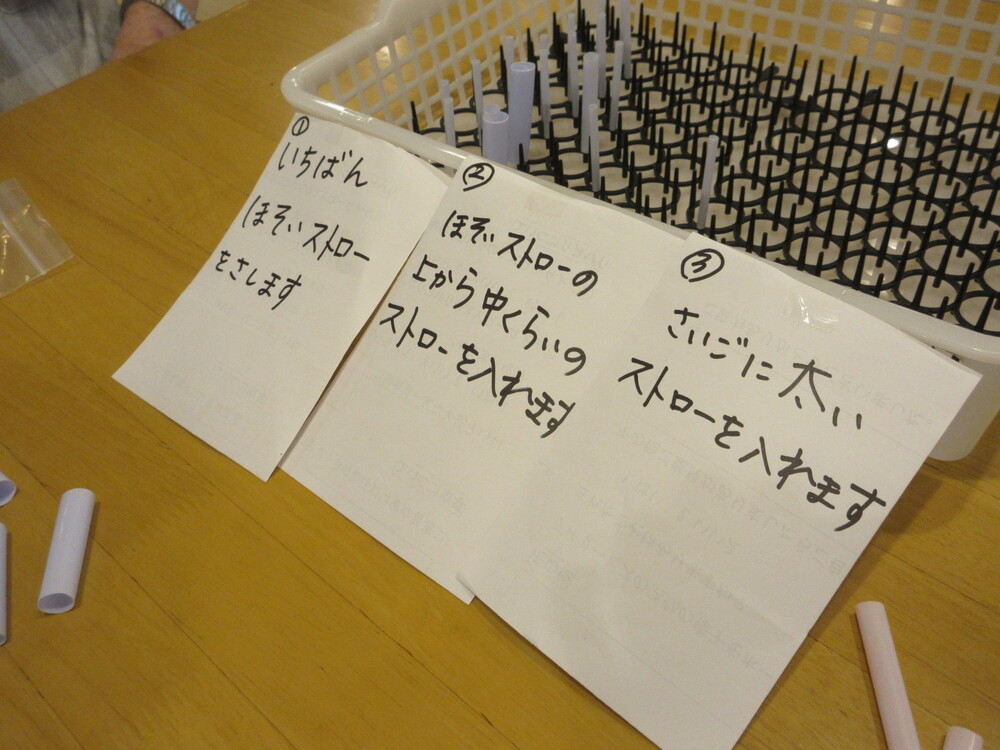 ①
いちばん
ほそいストロー
をさします
②
ほそいストローの
上から中くらいの
ストローを入れます
③
さいごに太い
ストローを入れます